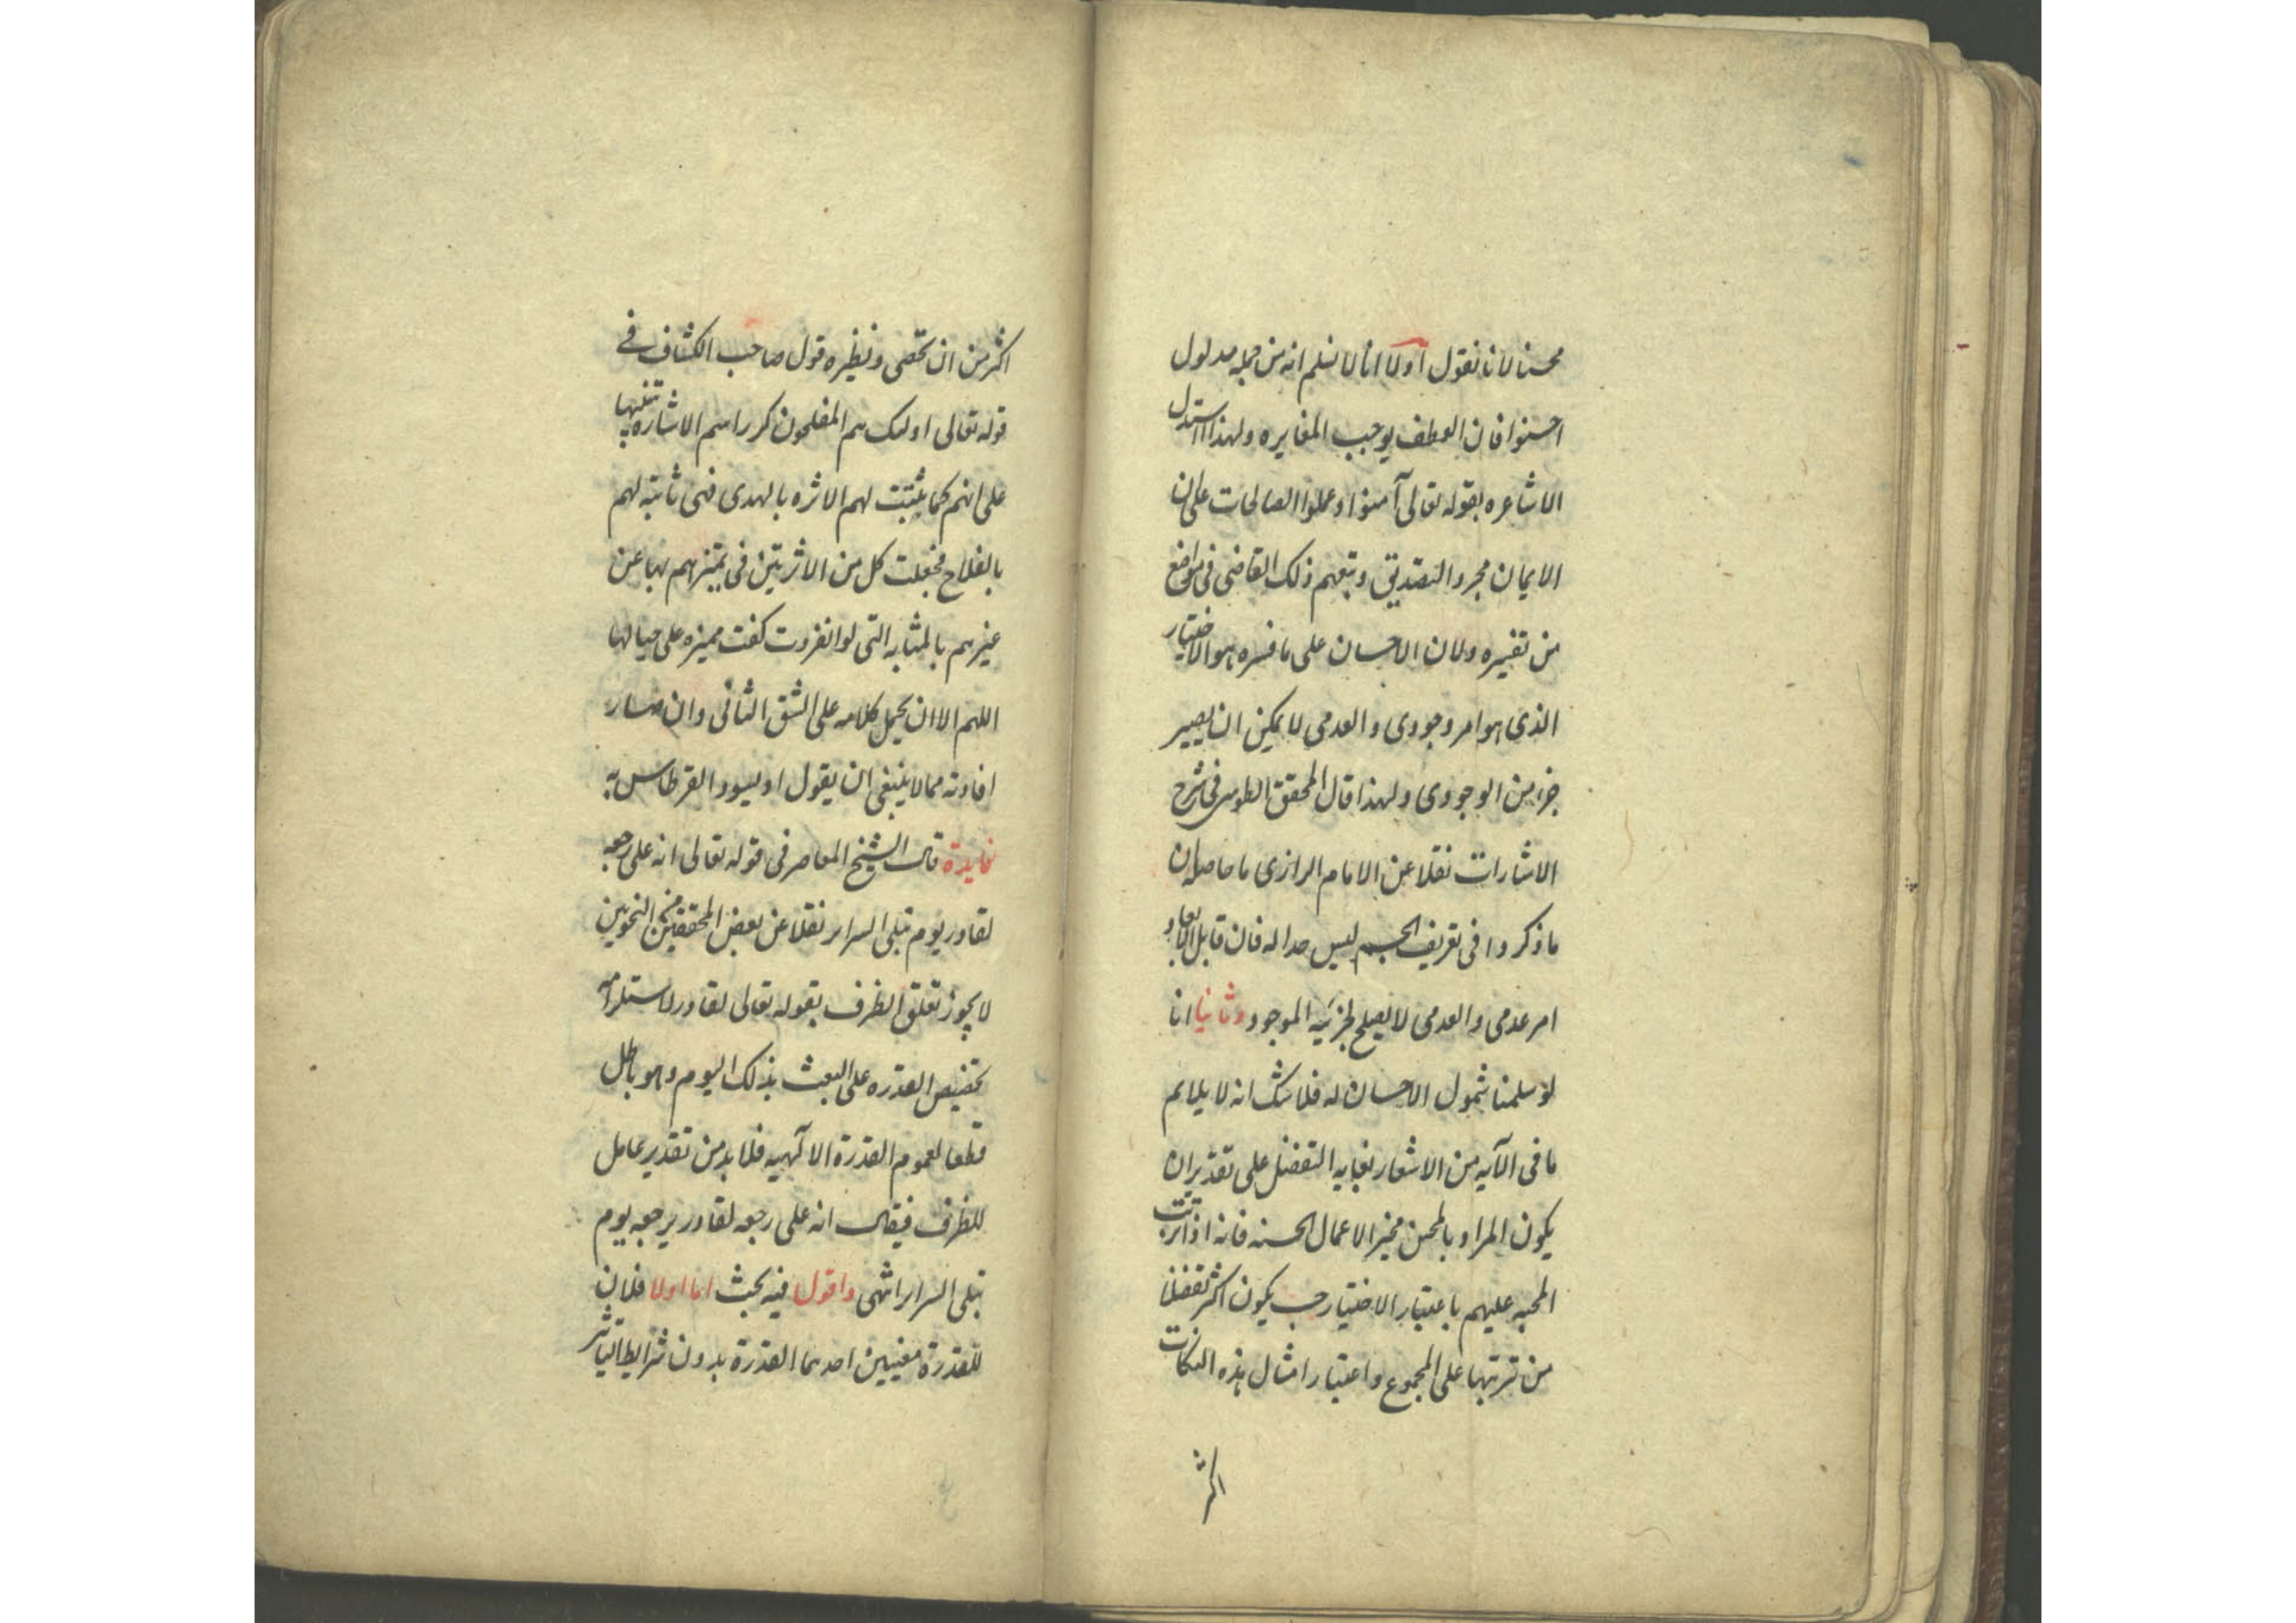 محسنا لانا نقول اولا انا لا نسلم انه من جملة مدلول
احسنوا فان العطف يوجب المغايره ولهذا استدل
الاشاعره بقوله تعالى آمنوا وعملوا الصالحات على ان
الايمان مجرد التصديق وتبعهم ذلك القاضى فى مواضع
من تفسيره ولان الاحسان على ما فسره هو الاختيار
الذى هو امر وجودى والعدمى لا يمكن ان يصير
جزء من الوجودى ولهذا قال المحقق الطوسى فى شرح
الاشارات نقلا عن الامام الرازى ما حاصله ان
ما ذكروا فى تعريف الجسم ليس حدا له فان قابل الابعاد
امر عدمى والعدمى لا يصلح لجزئيه الموجود وثانيا انا
لو سلمنا شمول الاحسان له فلا شك انه لا يلايم
ما فى الآيه من الاشعار بغايه التفضل على تقدير ان
يكون المراد بالمحسن مخير الاعمال الحسنه فانه اذا ترتبت
المحبه عليهم باعتبار الاختيار حسب يكون اكثر تفضلا
من ترتبها على المجموع واعتبار امثال هذه النكات
اكثر
اكثر من ان تحصى ونظيره قول صاحب الكشاف فى
قوله تعالى اولئك هم المفلحون كرر اسم الاشاره تنبيها
على انهم كما يثبت لهم الاثره بالهدى فهى ثابته لهم
بالفلاح فجعلت كل من الاثرتين فى تميزهم بها عن
غيرهم بالمثابه التى لو انفردت كفت مميزه على حيالها
اللهم الا ان يحمل كلامه على الشق الثانى وان صار
افادته مما لا ينبغى ان يقول او ليسود القرطاس به
فايدة قال الشيخ المعاصر فى قوله تعالى انه على رجعه
لقادر يوم تبلى السراير نقلا عن بعض المحققين من النحويين
لا يجوز تعلق الظرف بقوله تعالى لقادر لاستلزامه
تخصيص القدره على البعث بذلك اليوم وهو باطل
قطعا لعموم القدرة الالهيه فلا بد من تقدير عامل
للظرف فيقال انه على رجعه لقادر يرجعه يوم
تبلى السراير انتهى واقول فيه بحث اما اولا فلان
للقدرة معنيين احدهما القدرة بدون شرايط التاثير